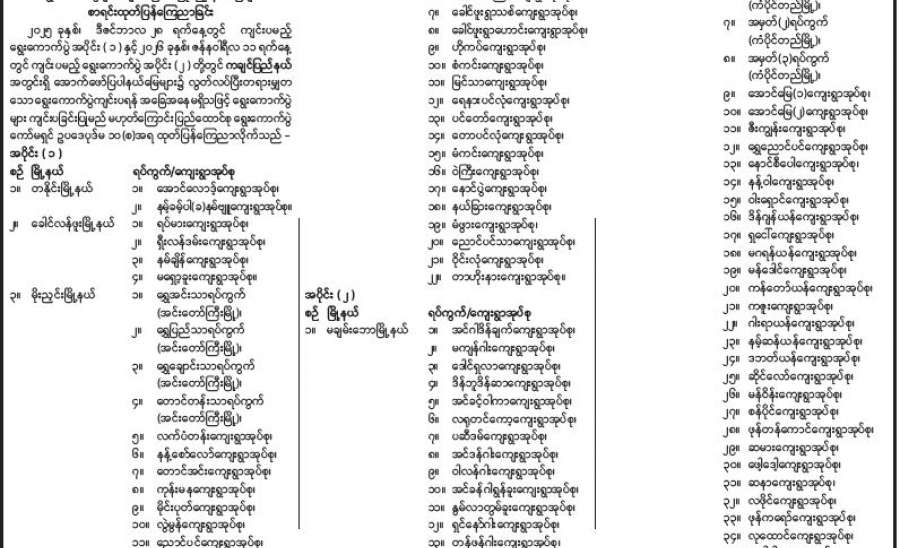 စာရင်းထုတ်ပြန်ကြေညာခြင်း
၂၀၂၅ ခုနှစ်၊ ဒီဇင်ဘာလ ၂၈ ရက်နေ့တွင် ကျင်းပမည့်
ရွေးကောက်ပွဲ အပိုင်း ( ၁ ) နှင့် ၂၀၂၆ ခုနှစ်၊ ဇန်နဝါရီလ ၁၁ ရက်နေ့
တွင် ကျင်းပမည့် ရွေးကောက်ပွဲ အပိုင်း ( ၂ ) တို့တွင် ကချင်ပြည်နယ်
အတွင်းရှိ အောက်ဖော်ပြပါနယ်မြေများ၌ လွတ်လပ်ပြီးတရားမျှတ
သော ရွေးကောက်ပွဲကျင်းပရန် အခြေအနေမရှိသဖြင့် ရွေးကောက်ပွဲ
များ ကျင်းပခြင်းပြုမည် မဟုတ်ကြောင်း ပြည်ထောင်စု ရွေးကောက်ပွဲ
ကော်မရှင် ဥပဒေပုဒ်မ ၁၀ (စ)အရ ထုတ်ပြန်ကြေညာလိုက်သည် –
အပိုင်း ( ၁ )
စဉ် မြို့နယ် ရပ်ကွက်/ကျေးရွာအုပ်စု
၁။ တနိုင်းမြို့နယ် ၁။ အောင်လော့ဒ်ကျေးရွာအုပ်စု၊
၂။ နမ့်ခမ့်ပါ(ခ)နမ်ဗျူကျေးရွာအုပ်စု။
၂။ ခေါင်လန်ဖူးမြို့နယ် ၁။ ရပ်မားကျေးရွာအုပ်စု၊
၂။ ရှီးလန်ဒမ်းကျေးရွာအုပ်စု၊
၃။ နမ်ချိန်ကျေးရွာအုပ်စု၊
၄။ မရှော့ခူးကျေးရွာအုပ်စု။
၃။ မိုးညှင်းမြို့နယ် ၁။ ရွှေအင်းသာရပ်ကွက်
(အင်းတော်ကြီးမြို့)၊
၂။ ရွှေပြည်သာရပ်ကွက်
(အင်းတော်ကြီးမြို့)၊
၃။ ရွှေချောင်းသာရပ်ကွက်
(အင်းတော်ကြီးမြို့)၊
၄။ တောင်တန်းသာရပ်ကွက်
(အင်းတော်ကြီးမြို့)၊
၅။ လက်ပံတန်းကျေးရွာအုပ်စု၊
၆။ နန့်စော်လော်ကျေးရွာအုပ်စု၊
၇။ တောင်အင်းကျေးရွာအုပ်စု၊
၈။ ကုန်းမနကျေးရွာအုပ်စု၊
၉။ မိုင်းပုတ်ကျေးရွာအုပ်စု၊
၁၀။ လွဲမွန်ကျေးရွာအုပ်စု၊
၁၁။ ညောင်ပင်ကျေးရွာအုပ်စု၊
၇။ ခေါင်ဖူးရွာသစ်ကျေးရွာအုပ်စု၊
၈။ ခေါင်ဖူးရွာဟောင်းကျေးရွာအုပ်စု၊
၉။ ဟိုကပ်ကျေးရွာအုပ်စု၊
၁၀။ စံကင်းကျေးရွာအုပ်စု၊
၁၁။ မြင်သာကျေးရွာအုပ်စု၊
၁၂။ ရေနားပင်လုံကျေးရွာအုပ်စု၊
၁၃။ ပင်တော်ကျေးရွာအုပ်စု၊
၁၄။ တောပင်လုံကျေးရွာအုပ်စု၊
၁၅။ မံကင်းကျေးရွာအုပ်စု၊
၁၆။ ဝဲကြီးကျေးရွာအုပ်စု၊
၁၇။ နောင်ပွဲကျေးရွာအုပ်စု၊
၁၈။ နယ်ခြားကျေးရွာအုပ်စု၊
၁၉။ မံဖွားကျေးရွာအုပ်စု၊
၂၀။ ညောင်ပင်သာကျေးရွာအုပ်စု၊
၂၁။ ဝိုင်းလုံကျေးရွာအုပ်စု၊
၂၂။ တာဟိုးနားကျေးရွာအုပ်စု။
အပိုင်း ( ၂ )
စဉ် မြို့နယ် ရပ်ကွက်/ကျေးရွာအုပ်စု
၁။ မချမ်းဘောမြို့နယ် ၁။ အင်ဂါဒိန်ချက်ကျေးရွာအုပ်စု၊
၂။ မကျန်ဂါးကျေးရွာအုပ်စု၊
၃။ ဒေါင်ရှလာကျေးရွာအုပ်စု၊
၄။ ဒိန်ဘူဒိန်ဆာကျေးရွာအုပ်စု၊
၅။ အင်ခင့်ဝါကာကျေးရွာအုပ်စု၊
၆။ လရုတင်ကော့ကျေးရွာအုပ်စု၊
၇။ ပဆီဒမ်ကျေးရွာအုပ်စု၊
၈။ အင်ဒန်ဂါးကျေးရွာအုပ်စု၊
၉။ ဝါလန်ဂါးကျေးရွာအုပ်စု၊
၁၀။ အင်ခန်ဂါရွှန်ခူးကျေးရွာအုပ်စု၊
၁၁။ နွမ်လာတွမ်ခူးကျေးရွာအုပ်စု၊
၁၂။ ရှင်နော်ဂါးကျေးရွာအုပ်စု၊
၁၃။ တန်ဖန်ဂါးကျေးရွာအုပ်စု၊
(ကံပိုင်တည်မြို့)၊
၇။ အမှတ်(၂)ရပ်ကွက်
(ကံပိုင်တည်မြို့)၊
၈။ အမှတ်(၃)ရပ်ကွက်
(ကံပိုင်တည်မြို့)၊
၉။ အောင်မြေ(၁)ကျေးရွာအုပ်စု၊
၁၀။ အောင်မြေ(၂)ကျေးရွာအုပ်စု၊
၁၁။ ဇီးကျွန်းကျေးရွာအုပ်စု၊
၁၂။ ရွှေညောင်ပင်ကျေးရွာအုပ်စု၊
၁၃။ နောင်စီပေါကျေးရွာအုပ်စု၊
၁၄။ နန့်ဝါကျေးရွာအုပ်စု၊
၁၅။ ဝါးရှောင်ကျေးရွာအုပ်စု၊
၁၆။ ဒိန်ဂျန်ယန်ကျေးရွာအုပ်စု၊
၁၇။ ရှငေါ်ကျေးရွာအုပ်စု၊
၁၈။ မဂရန်ယန်ကျေးရွာအုပ်စု၊
၁၉။ မန်ဒေါင်ကျေးရွာအုပ်စု၊
၂၀။ ကန်တော်ယန်ကျေးရွာအုပ်စု၊
၂၁။ ကဇူးကျေးရွာအုပ်စု၊
၂၂။ ဂါးရာယန်ကျေးရွာအုပ်စု၊
၂၃။ နမ့်ဆန်ယန်ကျေးရွာအုပ်စု၊
၂၄။ ဒဘတ်ယန်ကျေးရွာအုပ်စု၊
၂၅။ ဆိုင်လော်ကျေးရွာအုပ်စု၊
၂၆။ မန်ဝိန်းကျေးရွာအုပ်စု၊
၂၇။ စန်ပိုင်ကျေးရွာအုပ်စု၊
၂၈။ ဖုန်တန်ကောင်ကျေးရွာအုပ်စု၊
၂၉။ ဆမားကျေးရွာအုပ်စု၊
၃၀။ ဖေါ့ဒေါ့ကျေးရွာအုပ်စု၊
၃၁။ ဆနာကျေးရွာအုပ်စု၊
၃၂။ လဖိုင်ကျေးရွာအုပ်စု၊
၃၃။ ဖုန်ကရော်ကျေးရွာအုပ်စု၊
၃၄။ လုထောင်ကျေးရွာအုပ်စု၊